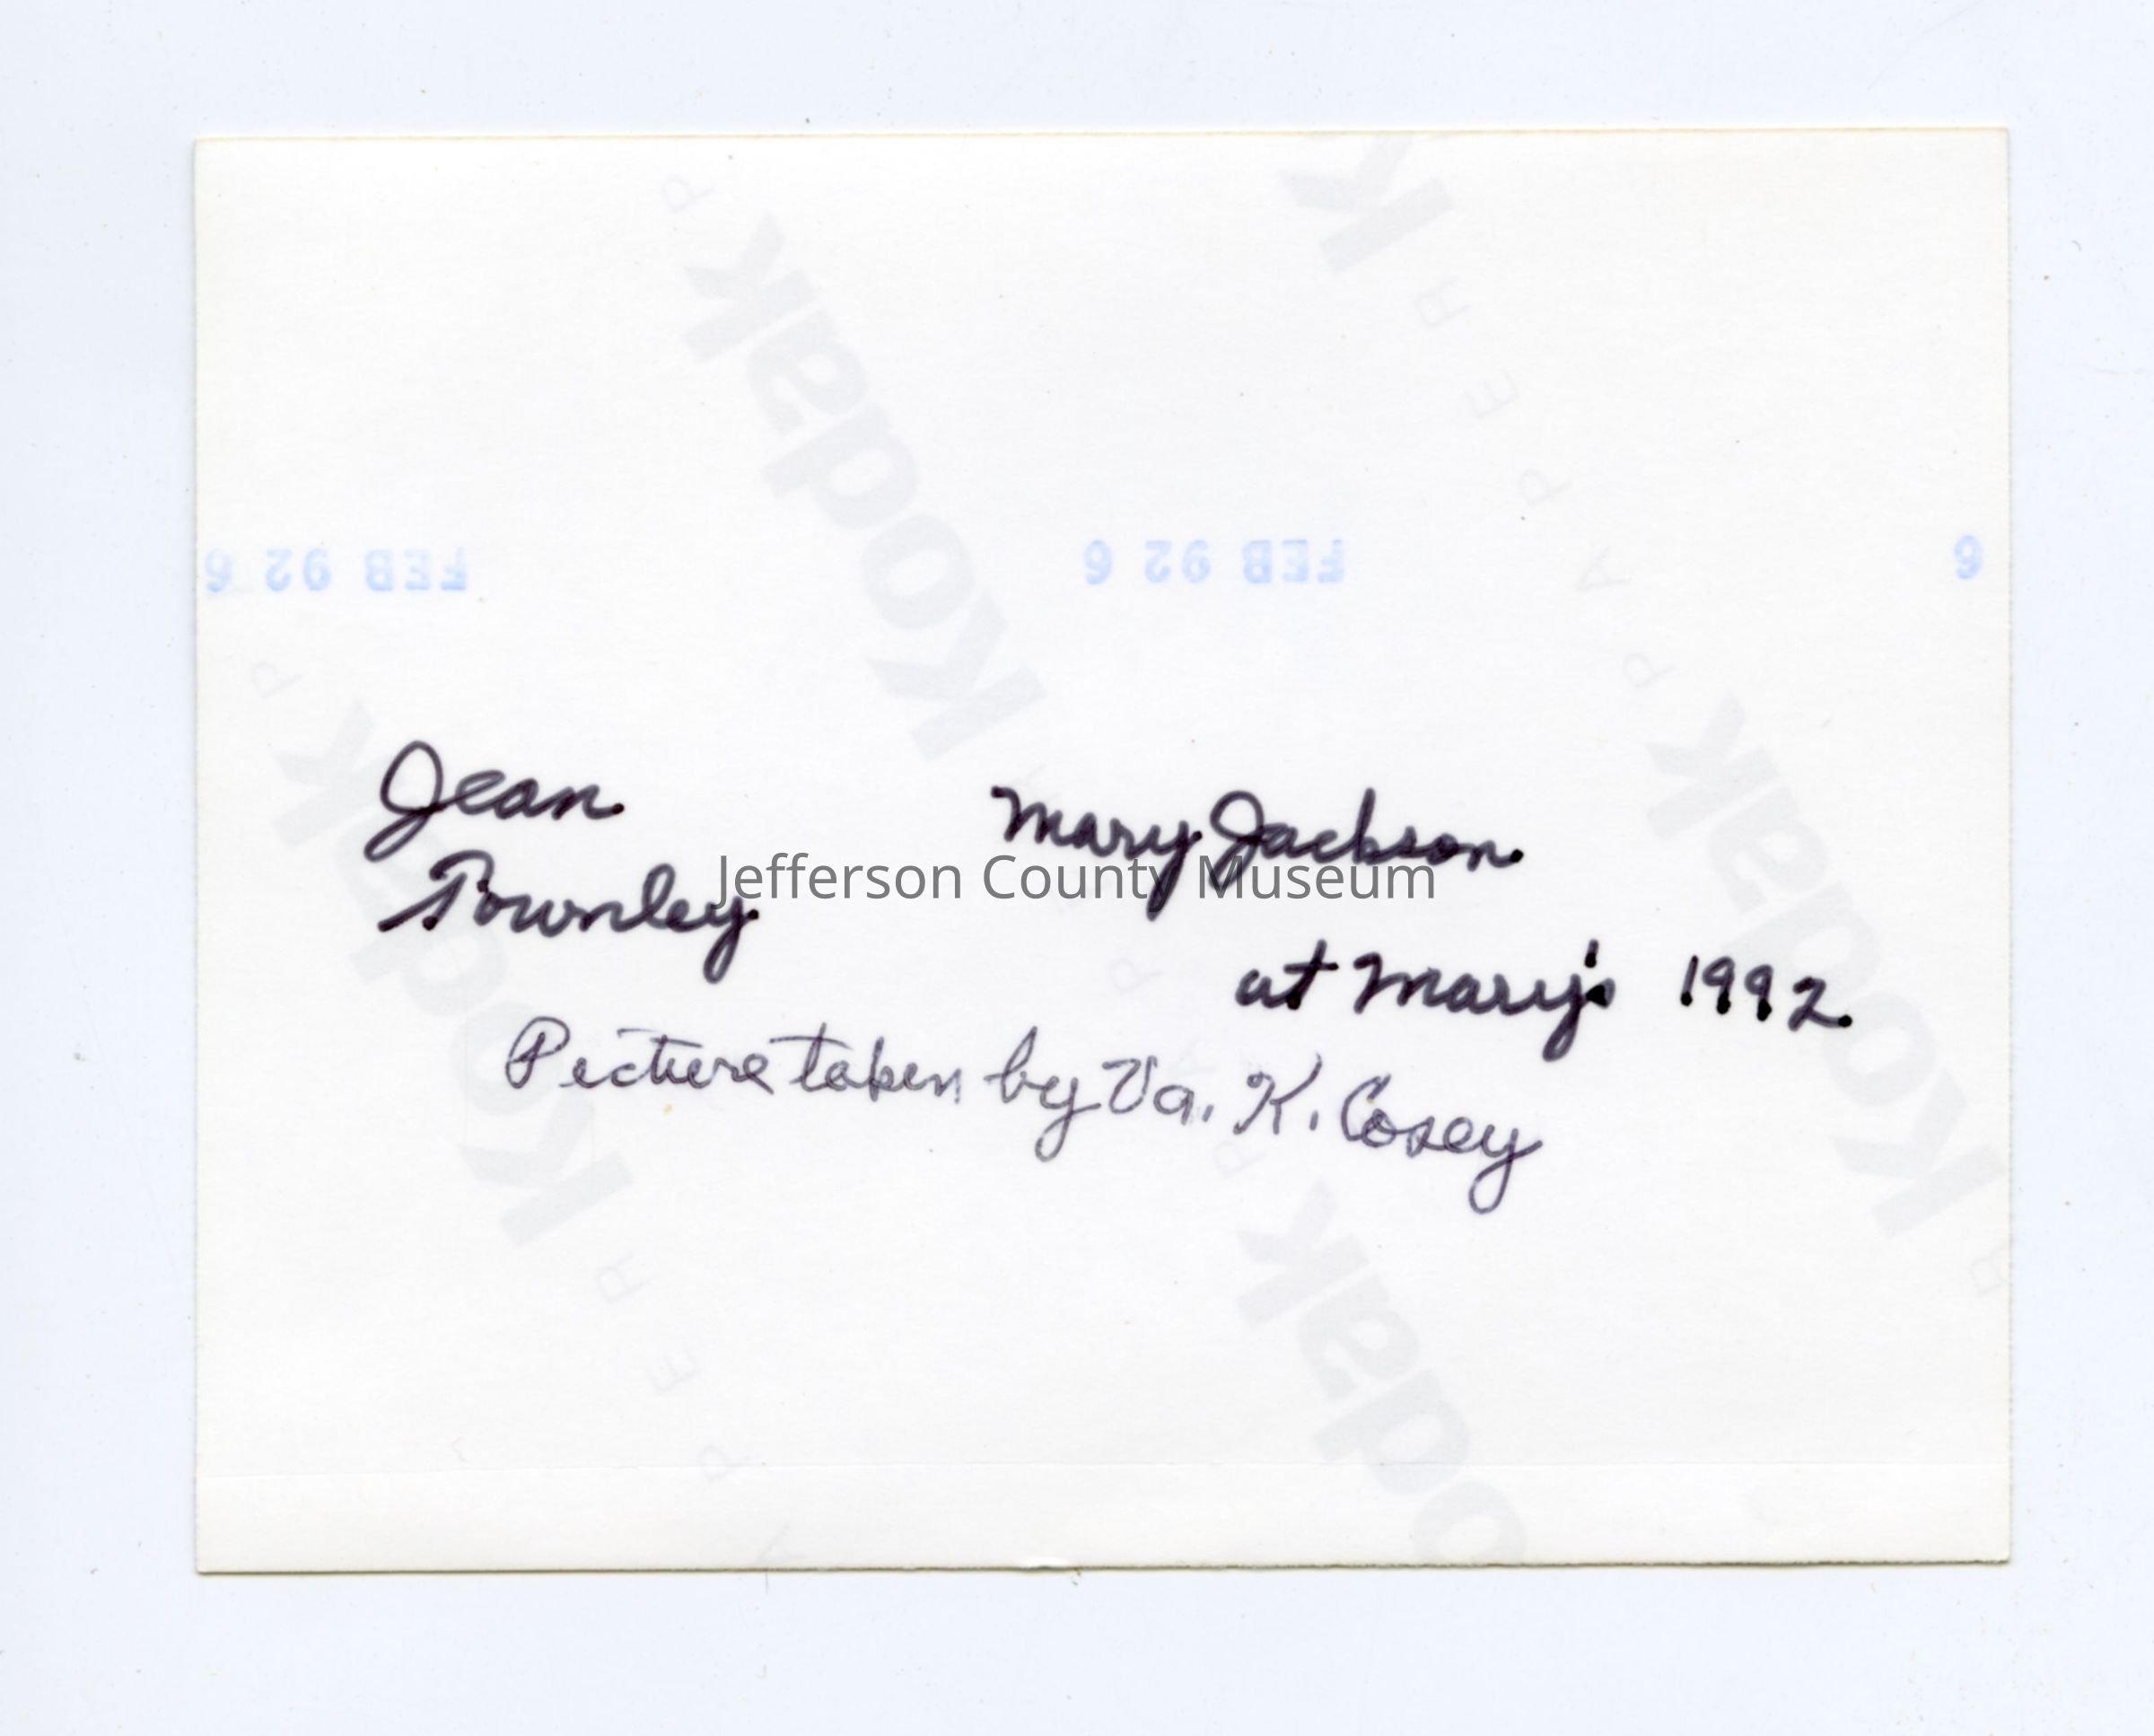 FEB 92 6
FEB 92 6
6
Jean
Townley
Mary Jackson
at Mary's 1992
Picture taken by Va. K. Cosey
Jefferson County Museum
Kodak
Kodak
Kodak
Kodak
PAPER